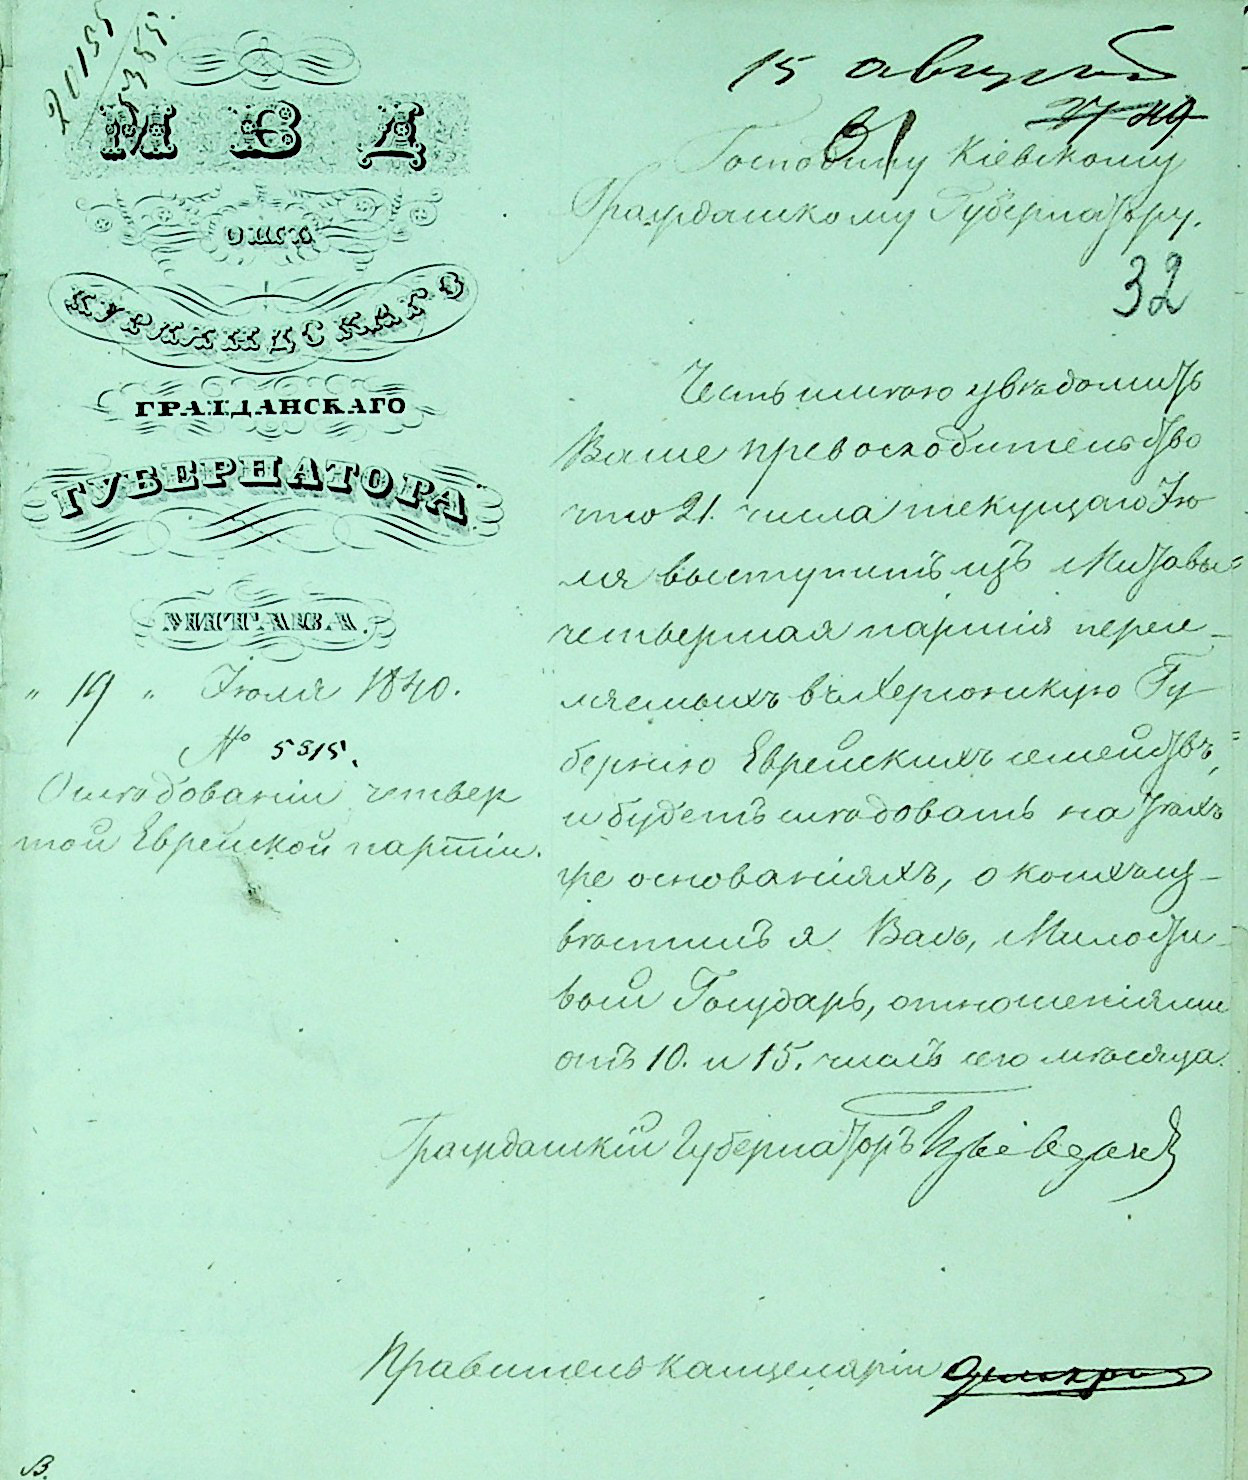 20155
5385.
МВД
ОТЪ
КУРЛЯНДСКАГО
ГРАЖДАНСКАГО
ГУБЕРНАТОРА
МИТАВА.
" 19 " Іюля 1840.
№ 5515.
О слѣдованіи четвер
той Еврейской партіи.
15 августа
Господину Кіевскому
Гражданскому Губернатору.
32
Честь имѣю увѣдомить
Ваше превосходительство
что 21. числа текущаго Ію
ля выступитъ изъ Митавы
четвертая партія пересе-
ляемыхъ въ Херсонскую Гу-
бернію Еврейскихъ семействъ,
и будетъ слѣдовать на тѣхъ
же основаніяхъ, о коихъ из-
вѣстилъ я Васъ, Милости-
вый Государь, отношеніями
отъ 10. и 15. числъ сего мѣсяца.
Гражданскій Губернаторъ
Правитель Канцеляріи
В.